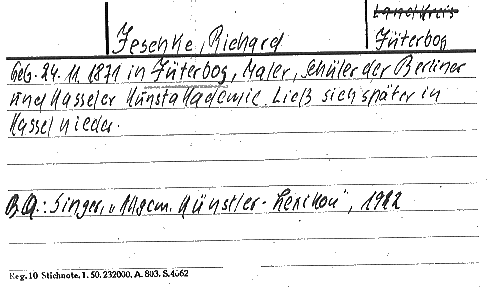 Landkreis
Jeschke, Richard Jüterbog
Geb. 24. 11. 1871 in Jüterbog, Maler, Schüler der Berliner
und Kasseler Kunstakademie. Ließ sich später in
Kassel nieder.
B.Q.: Singer, „Allgem. Künstler-Lexikon", 1922
Reg. 10 Stichnote. I. 50. 232000. A. 803. S. 4662